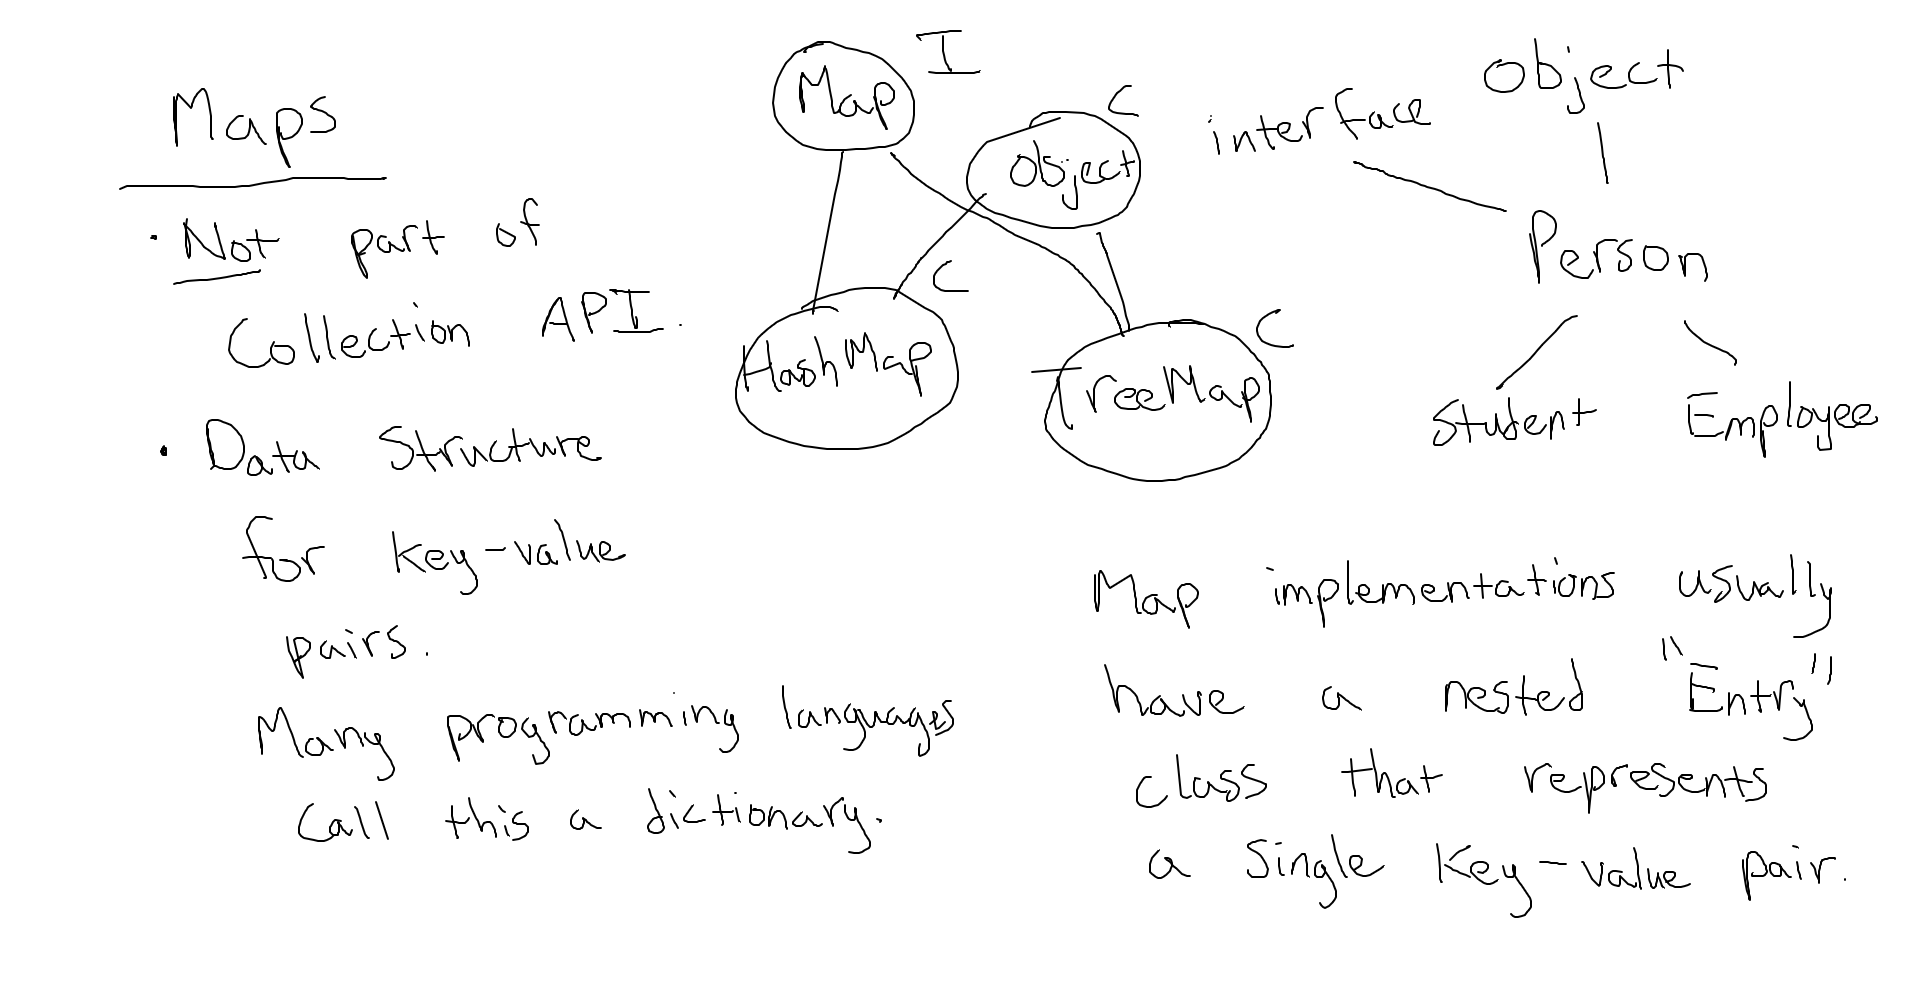 Maps
• Not part of
Collection API.
• Data Structure
for key-value
pairs.
Many programming languages
call this a dictionary.
Map
I
Object
C
HashMap
C
TreeMap
C
interface
Object
Person
Student
Employee
Map implementations usually
have a nested "Entry"
class that represents
a single key-value pair.